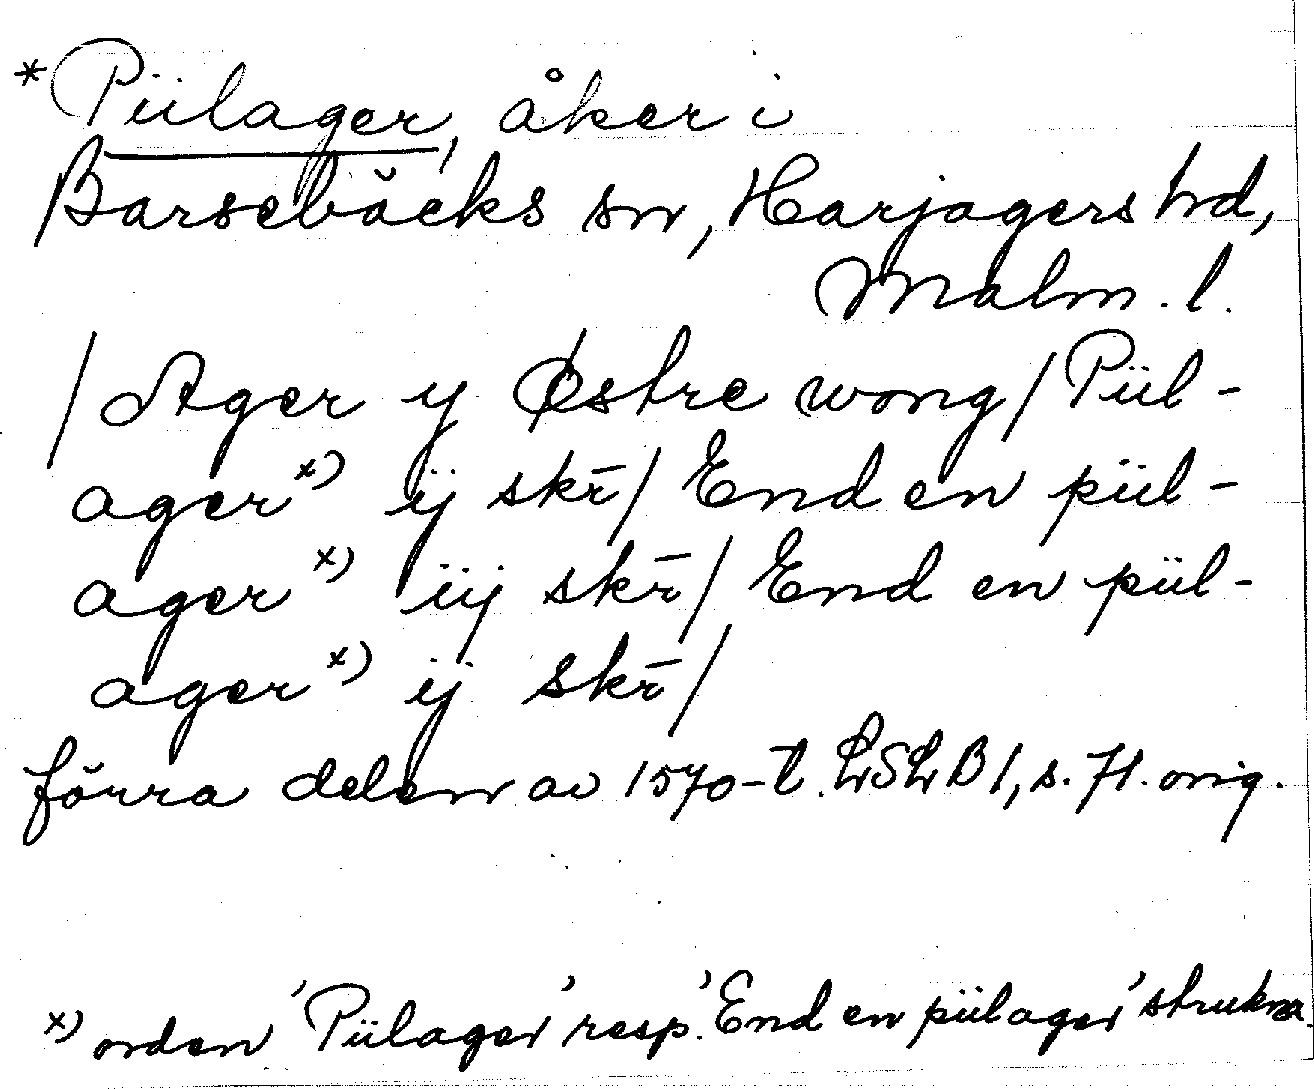 *Piilager, åker i
Barsebäcks sn, Harjagers hd,
Malm. l.
/ Ager y Østre wong / Piil-
ager x) ij skr̄ / End en piil-
ager x) iij skr̄ / End en piil-
ager x) ij skr̄ /
förra delen av 1570-t. LSLB 1, s. 71. orig.
x) orden 'Piilager' resp. 'End en piilager' strukna.